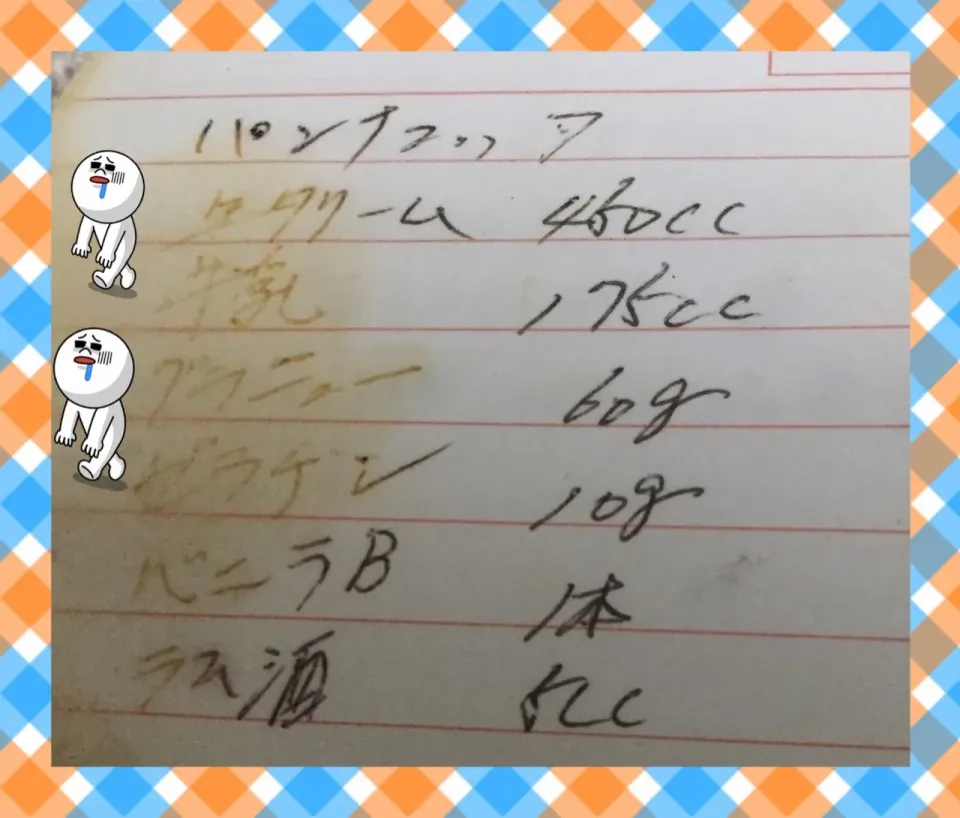 パンナコッタ
生クリーム 450cc
牛乳 175cc
グラニュー 60g
ゼラチン 10g
バニラB 1本
ラム酒 5cc